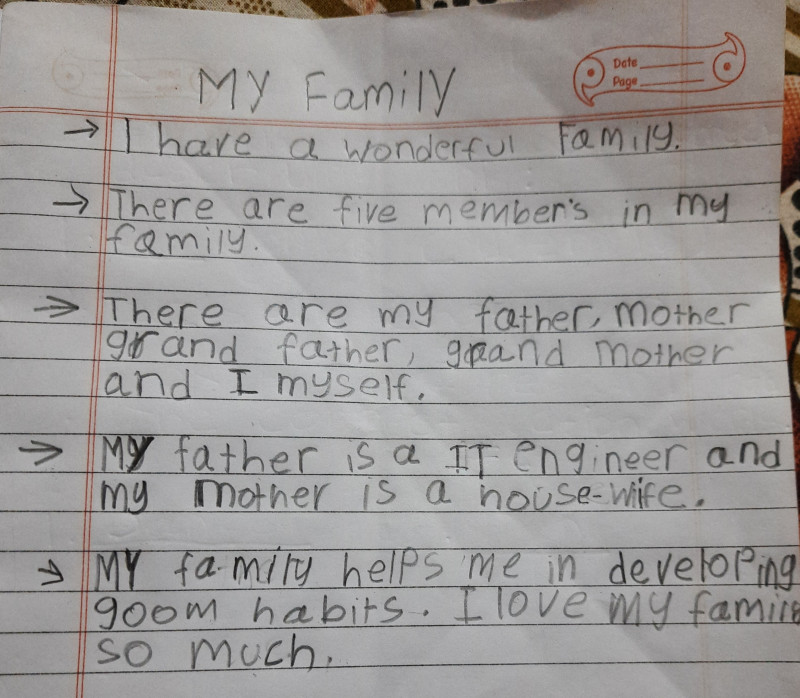 Date
Page
My Family
→ I have a wonderful Family.
→ There are five member's in my
family.
→ There are my father, mother
grand father, grand mother
and I myself.
→ My father is a IT engineer and
my mother is a house-wife.
→ My family helps me in developing
goom habits. I love my family
so much.